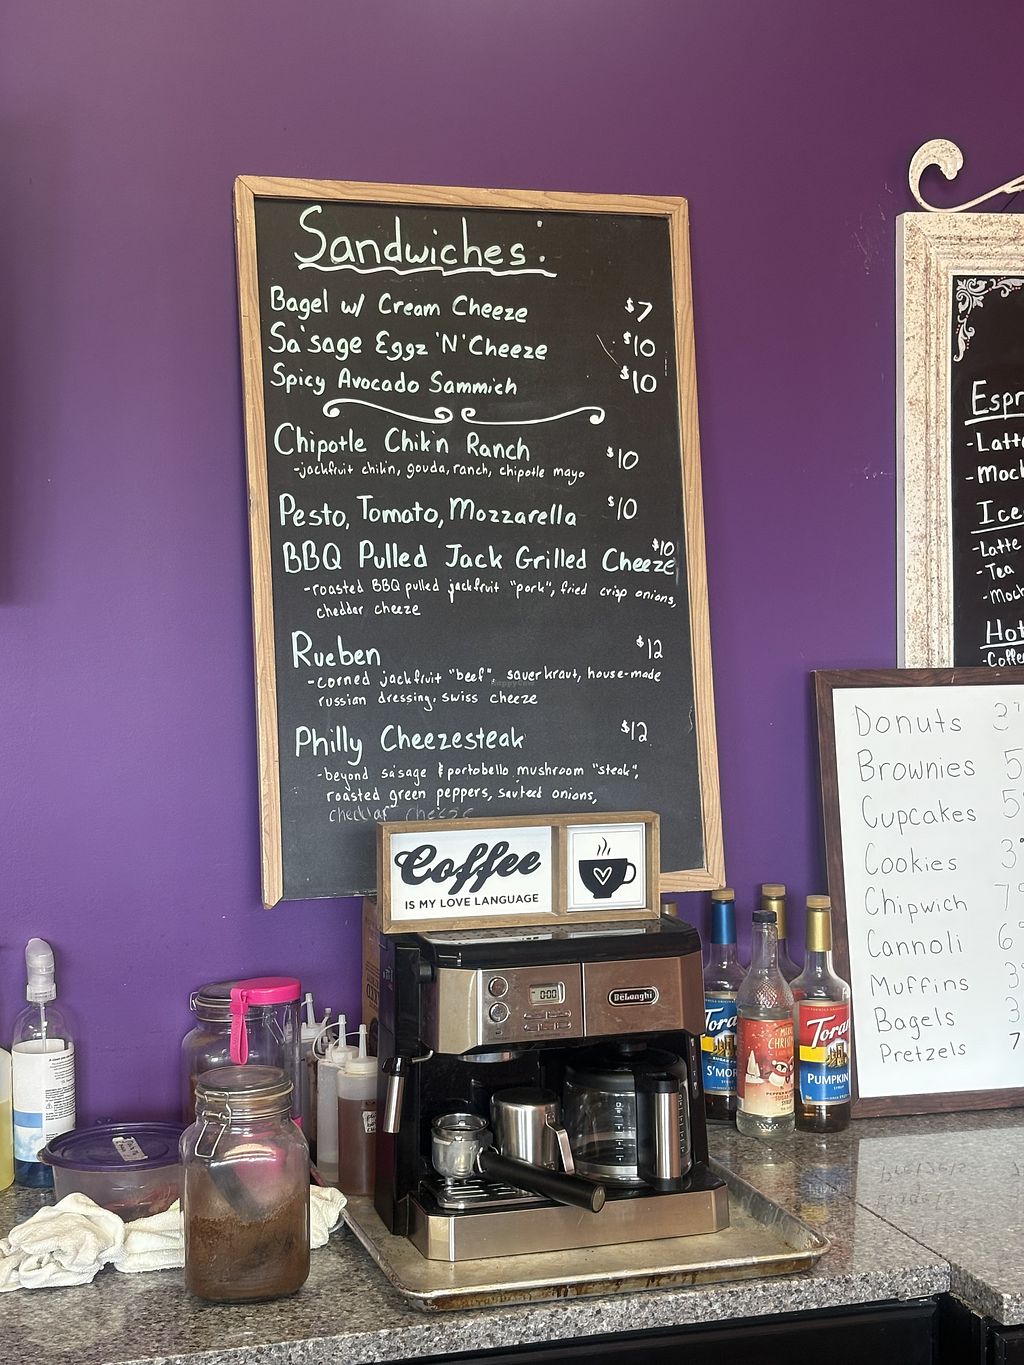 Sandwiches:
Bagel w/ Cream Cheeze $7
Sa'sage Eggz 'N' Cheeze $10
Spicy Avocado Sammich $10
Chipotle Chik'n Ranch $10
-jackfruit chik'n, gouda, ranch, chipotle mayo
Pesto, Tomato, Mozzarella $10
BBQ Pulled Jack Grilled Cheeze $10
-roasted BBQ pulled jackfruit "pork", fried crisp onions,
cheddar cheeze
Rueben $12
-corned jackfruit "beef", sauerkraut, house-made
russian dressing, swiss cheeze
Philly Cheezesteak $12
-beyond sa'sage & portobello mushroom "steak",
roasted green peppers, sauteed onions,
cheddar cheeze
Coffee
IS MY LOVE LANGUAGE
0:00
DeLonghi
Espr
-Latt
-Moch
Ice
-Latte
-Tea
-Moch
Hot
-Coffe
Donuts
Brownies 5
Cupcakes 5
Cookies 3
Chipwich 7
Cannoli 6
Muffins 3
Bagels 3
Pretzels 7
Tora
S'MOR
Torani
PUMPKIN